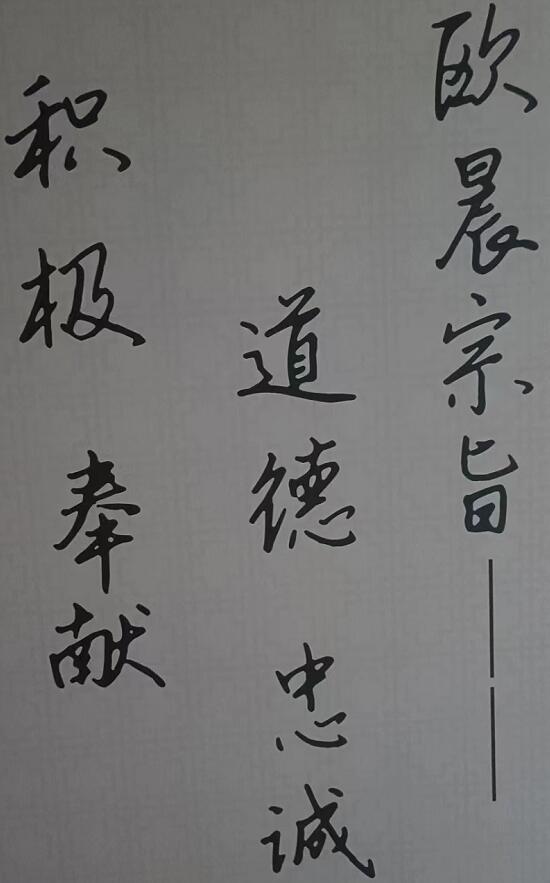 欧晨宗旨——
道德 忠诚
积极 奉献